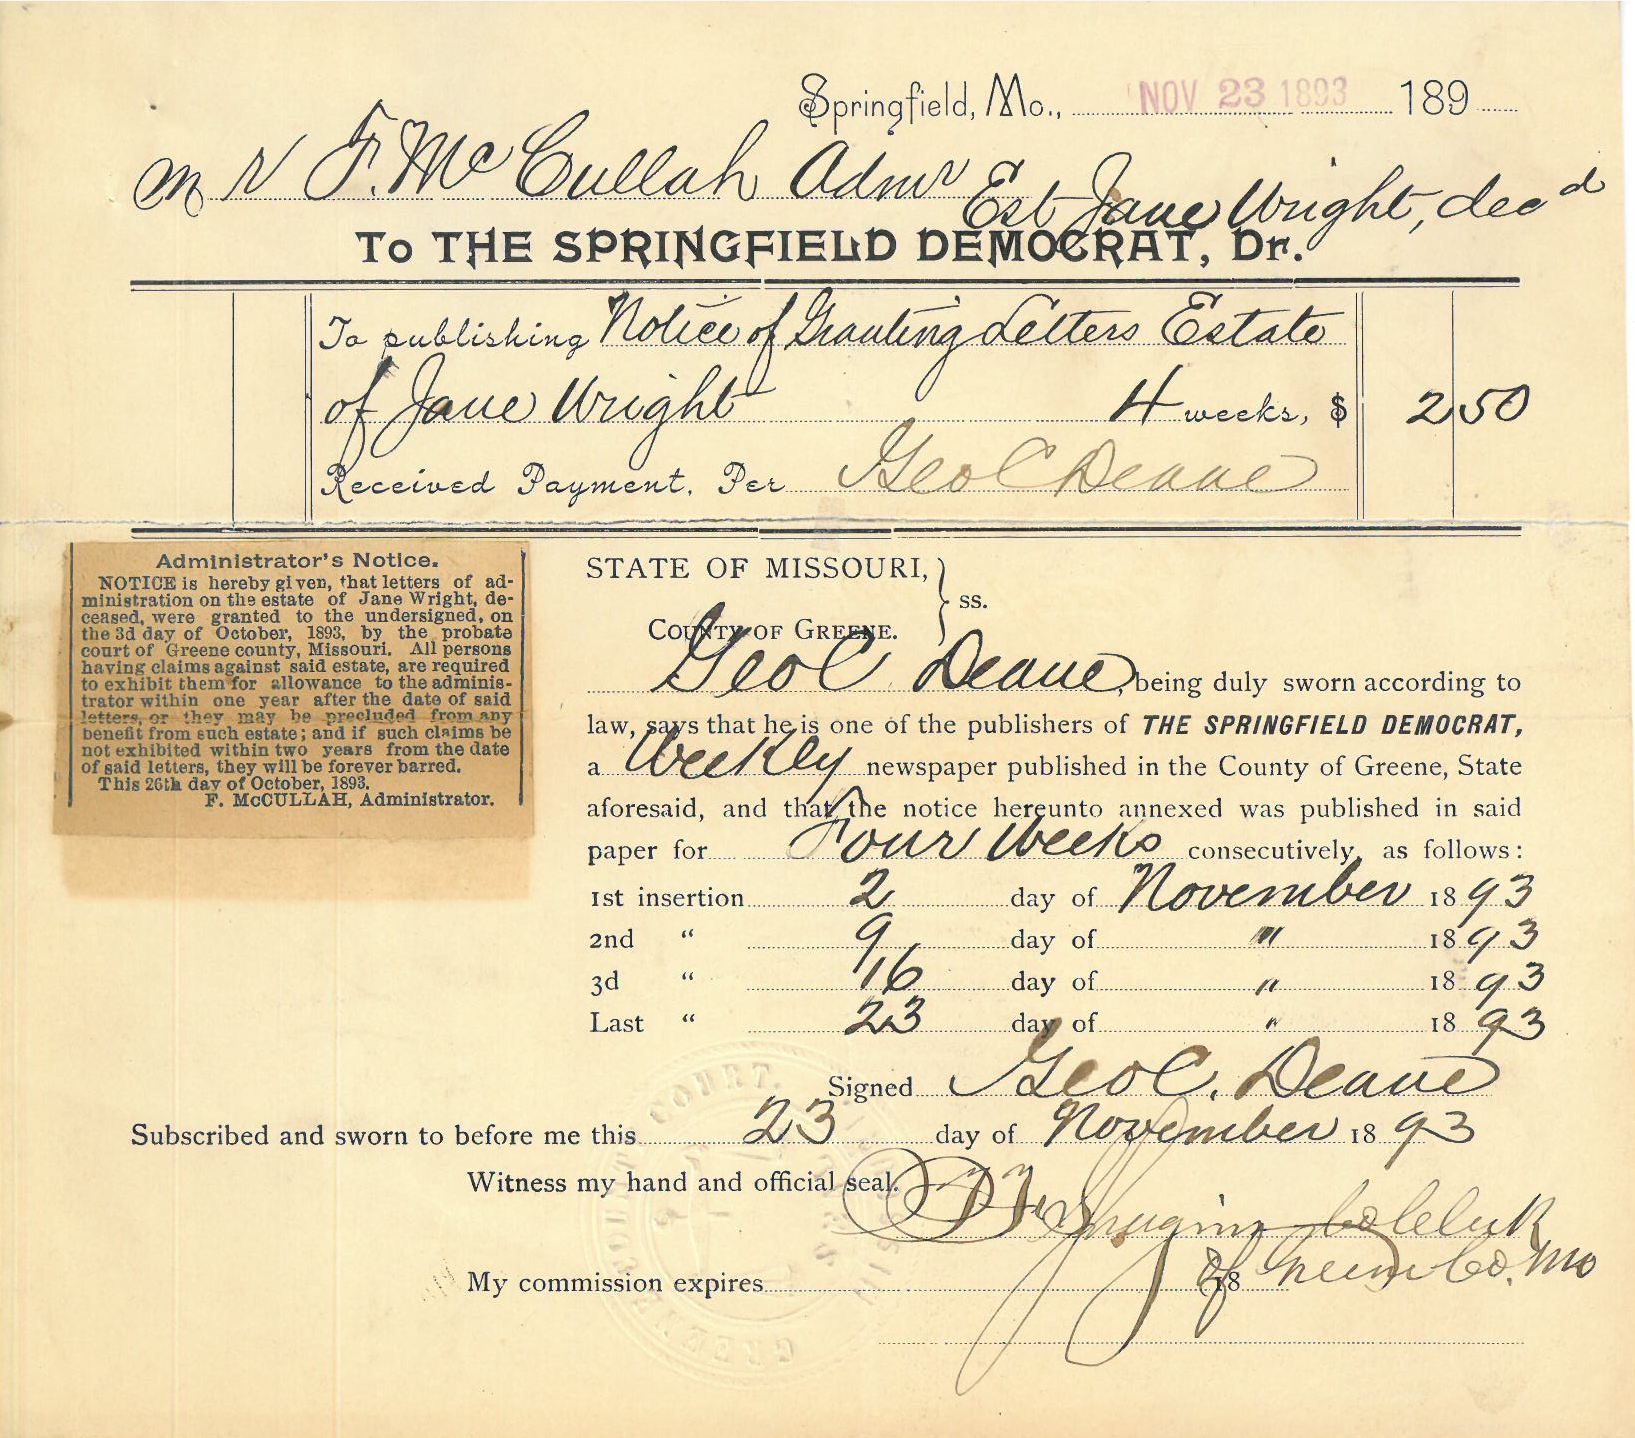 Springfield, Mo., NOV 23 1893 189
M N F. McCullah Admr Est Jane Wright, decd
To THE SPRINGFIELD DEMOCRAT, Dr.
To publishing Notice of Granting Letters Estate
of Jane Wright 4 weeks, $ 2 50
Received Payment, Per Geo C Deane
Administrator's Notice.
NOTICE is hereby given, that letters of ad-
ministration on the estate of Jane Wright, de-
ceased, were granted to the undersigned, on
the 3d day of October, 1893, by the probate
court of Greene county, Missouri. All persons
having claims against said estate, are required
to exhibit them for allowance to the adminis-
trator within one year after the date of said
letters, or they may be precluded from any
benefit from such estate; and if such claims be
not exhibited within two years from the date
of said letters, they will be forever barred.
This 26th day of October, 1893.
F. McCULLAH, Administrator.
STATE OF MISSOURI, } ss.
COUNTY OF GREENE.
Geo C Deane, being duly sworn according to
law, says that he is one of the publishers of THE SPRINGFIELD DEMOCRAT,
a Weekly newspaper published in the County of Greene, State
aforesaid, and that the notice hereunto annexed was published in said
paper for Four Weeks consecutively, as follows:
1st insertion 2 day of November 1893
2nd " 9 day of " 1893
3d " 16 day of " 1893
Last " 23 day of " 1893
Signed Geo C. Deane
Subscribed and sworn to before me this 23 day of November 1893
Witness my hand and official seal.
Co Clerk
My commission expires 18 of Greene Co. Mo